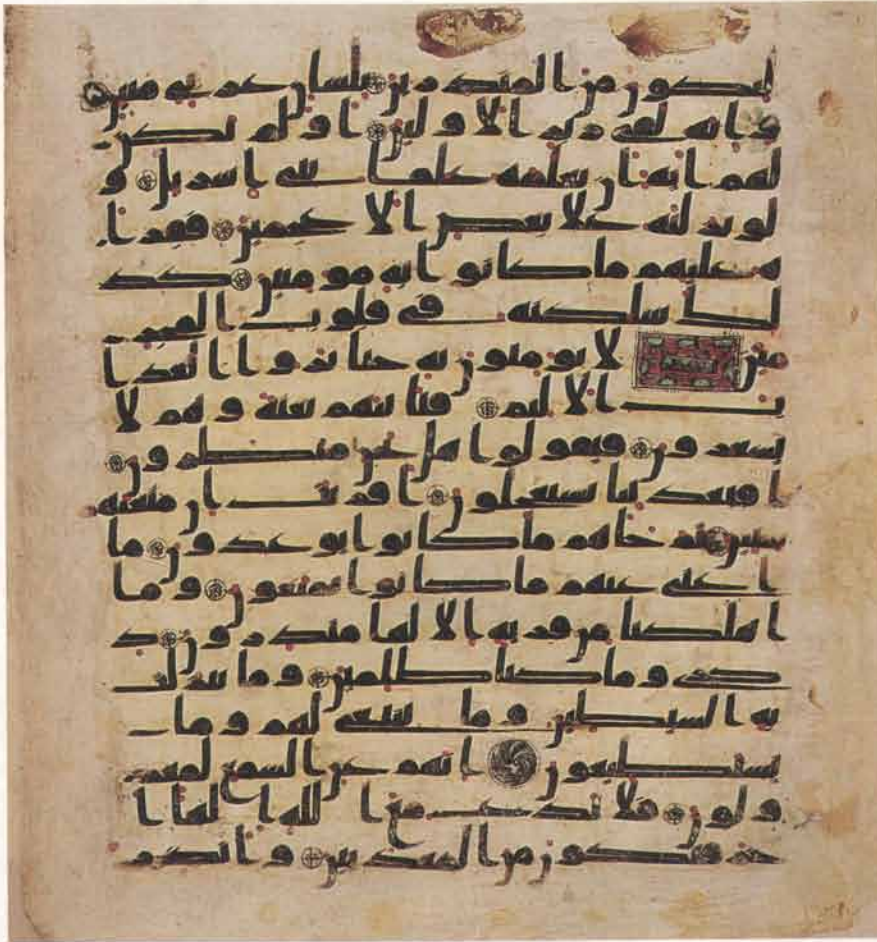 لتكون من المنذرين بلسان عربي مبين
وانه لفي زبر الاولين او لم يكن
لهم اية ان يعلمه علما بني اسرايل و
لو نزلنه على بعض الاعجمين فقرا
ه عليهم ما كانوا به مومنين كذ
لك سلكنه في قلوب المجر
مين لا يومنون به حتى يروا العذا
ب الاليم فياتيهم بغتة وهم لا
يشعرون فيقولوا هل نحن منظرون
افبعذابنا يستعجلون افريت ان متعنهم
سنين ثم جاهم ما كانوا يوعدون ما
اغنى عنهم ما كانوا يمتعون وما
اهلكنا من قرية الا لها منذرون ذ
كرى وما كنا ظلمين وما تنزلت
به الشيطين وما ينبغي لهم وما
يستطيعون انهم عن السمع لمعز
ولون فلا تدع مع الله الها ا
خر فتكون من المعذبين وانذر